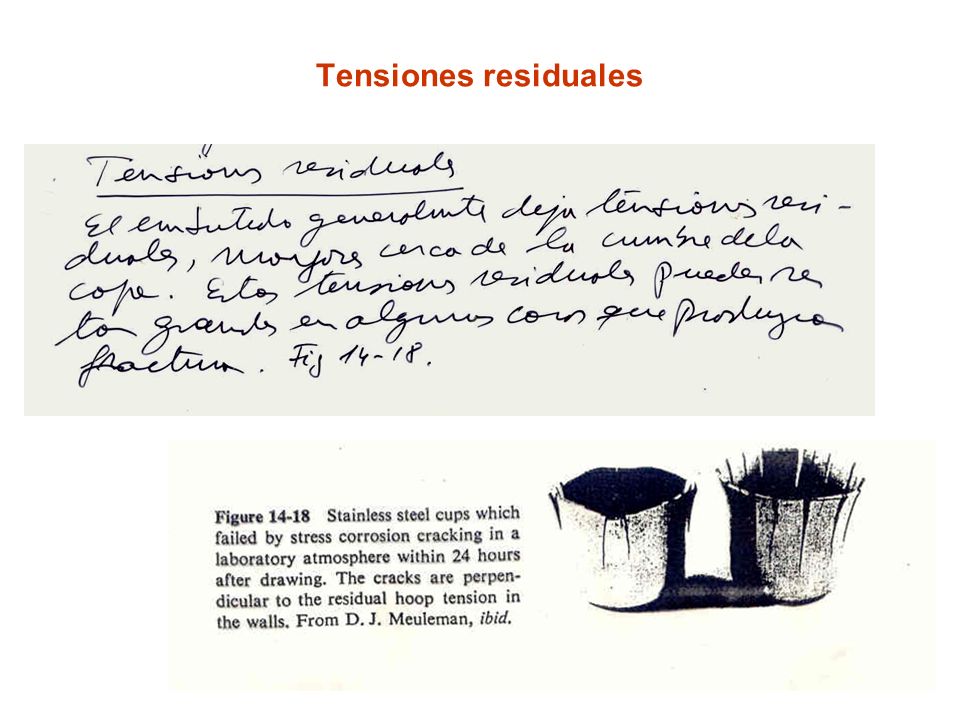 Tensiones residuales
Tensiones residuales
El embutido generalmente deja tensiones resi-
duales, mayores cerca de la cumbre de la
copa. Estas tensiones residuales pueden ser
tan grandes en algunos casos que produzcan
fractura. Fig 14-18.
Figure 14-18 Stainless steel cups which
failed by stress corrosion cracking in a
laboratory atmosphere within 24 hours
after drawing. The cracks are perpen-
dicular to the residual hoop tension in
the walls. From D. J. Meuleman, ibid.